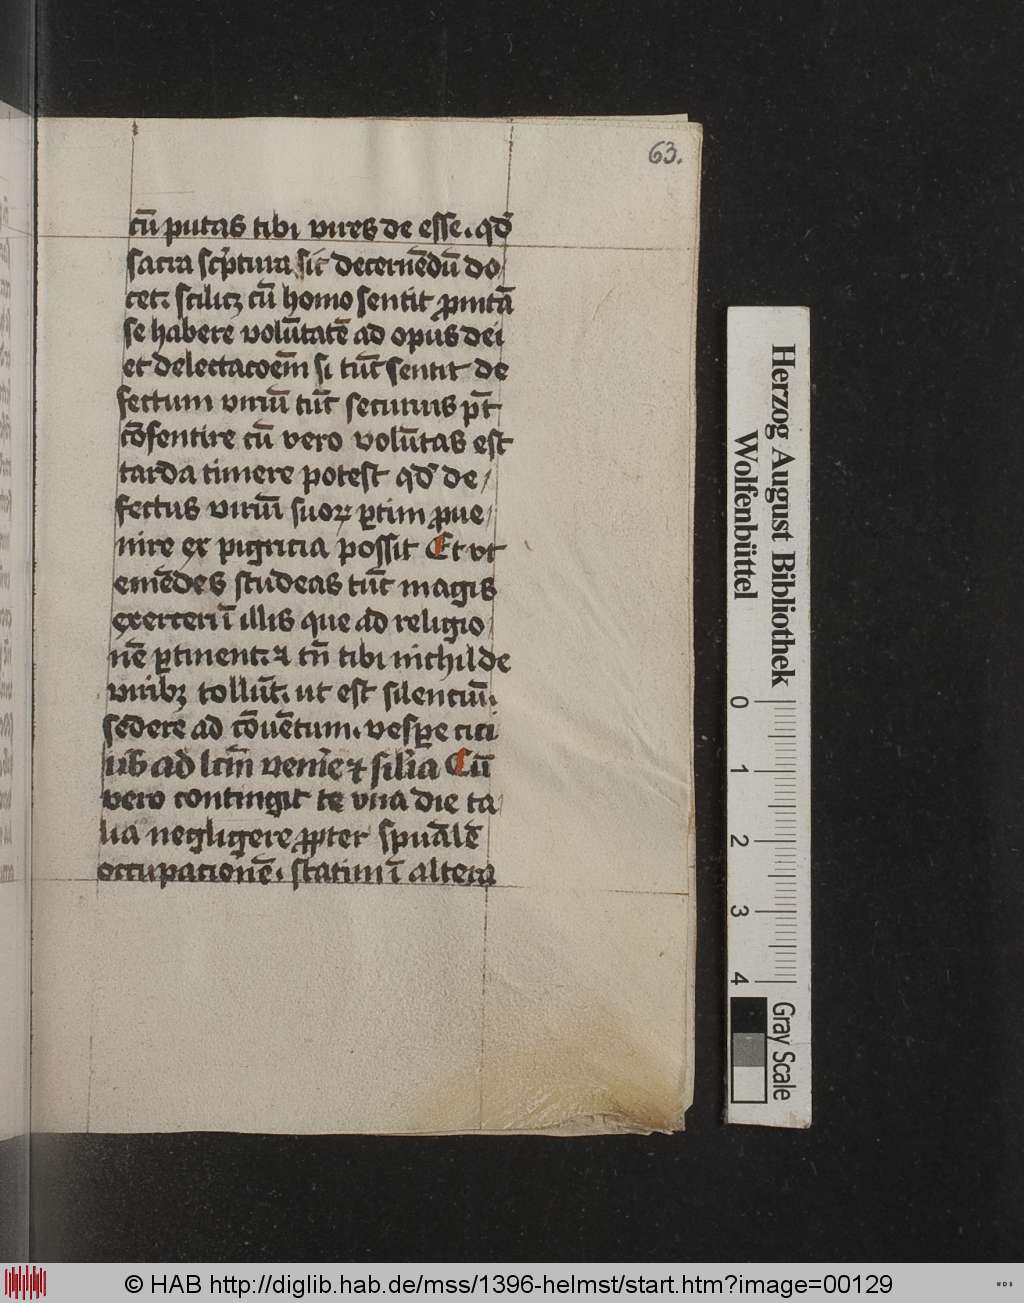 63.
cū putas tibi vires de esse. qd̄
sacra sc̄ptura sic decernēdū do
cet: scilicꝫ cū homo sentit ꝓmtā
se habere volūtatē ad opus dei
et delectacoēm si tūc sentit de
fectum viriū tūc securius pt̄
cōsentire cū vero volūtas est
tarda timere potest qd̄ de/
fectus viriū suoꝝ ꝑtim ꝓue/
nire ex pigricia possit Et vt
emēdes studeas tūc magis
exerceri ī illis que ad religio/
nē ꝑtinent: ⁊ tn̄ tibi nichil de
viribꝫ tollūt. ut est silenciū.
sedere ad cōuētum. vesꝑe citi
ad lcm̄ venīe ⁊ silīa Cū
vero contingit te vna die ta/
lia negligere ꝓpter spualē
occupacionē. statim ī altera
Herzog August Bibliothek
Wolfenbüttel
0 1 2 3 4
Gray Scale
© HAB http://diglib.hab.de/mss/1396-helmst/start.htm?image=00129